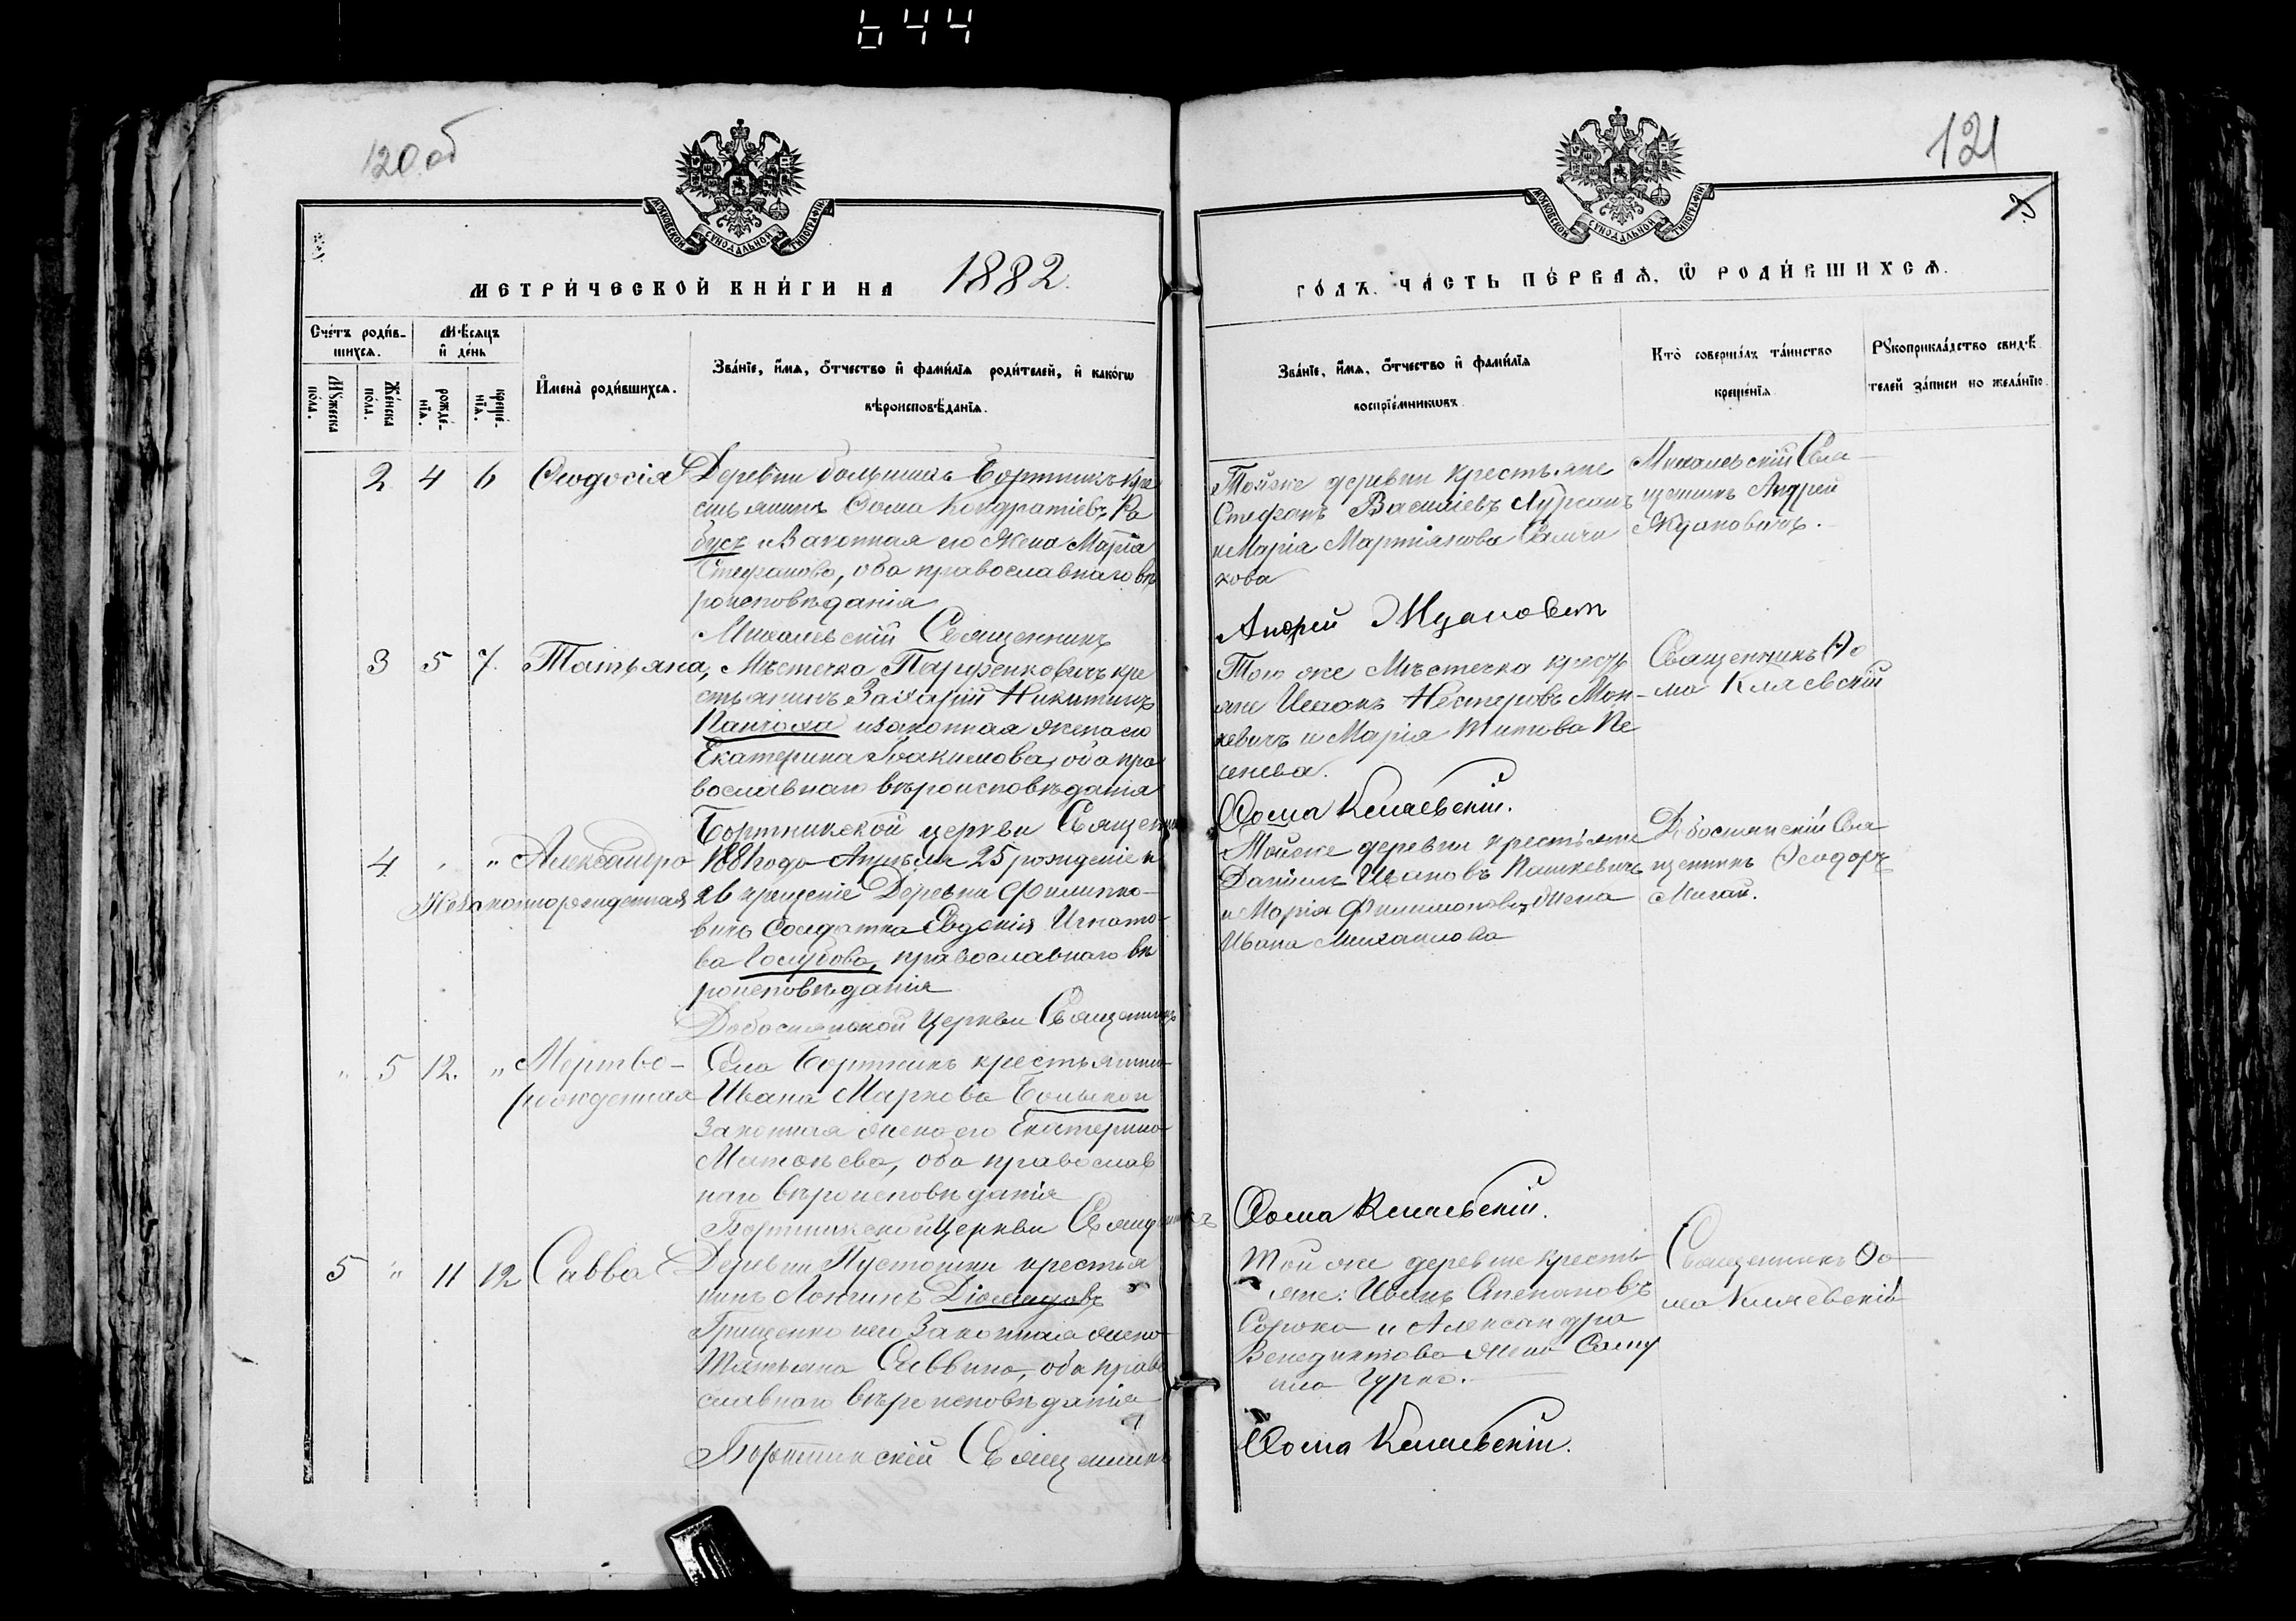 644
120 об
121
3
МОСКОВСКОЙ СѴНОДАЛЬНОЙ ТИПОГРАФІИ
МОСКОВСКОЙ СѴНОДАЛЬНОЙ ТИПОГРАФІИ
МЕТРИ́ЧЕСКОЙ КНИ́ГИ НА 1882.
ГО́ДЪ. ЧА́СТЬ ПЕ́РВАѦ, Ѿ РОДИ́ВШИХСѦ.
Сче́тъ роди́в-
шихсѧ.
Мѹ́жеска по́ла.
Же́нска по́ла.
Мѣ́сѧцъ
и҆ де́нь
рожде́-нїѧ.
креще́-нїѧ.
И҆мена̀ роди́вшихсѧ.
Зва́нїе, и҆́мѧ, ѻ҆́тчество и҆ фами́лїѧ роди́телей, и҆ како́гѡ
вѣроисповѣ́данїѧ.
Зва́нїе, и҆́мѧ, ѻ҆́тчество и҆ фами́лїѧ
воспрїе́мникѡвъ.
Кто̀ соверша́лъ та́инство
креще́нїѧ.
Рѹкоприкла́дство свидѣ́-
телей за́писи по жела́нїю.
2 4 6 Ѳеодосія Деревни большихъ Бортникъ кре
стьянинъ Ѳома Кондратіевъ Ра
бусъ и законная его жена Марія
Стефанова, оба православнаго вѣ
роисповѣданія
Михалевскій Священникъ
Тойже деревни крестьяне
Стефанъ Василіевъ
и Марія Мартіянова
кова
Андрей Ждановичъ
Михалевскій Свя-
щенникъ Андрей
Ждановичъ.
3 5 7. Татьяна, Мѣстечка Парфенковичъ кре
стьянинъ Захарій Никитинъ
и законная жена его
Екатерина Іоакимова, оба пра
вославнаго вѣроисповѣданія
Бортникской церкви Священникъ
Того же Мѣстечка крестья
не Исаакъ Нестеровъ Мон-
кевичъ и Марія Титова Пе
Ѳома Кляевскій.
Священникъ Ѳо
ма Кляевскій
4 " " Александра 1881 года Апрѣля 25 рожденіе и
Незаконнорожденная 26 крещеніе Деревни Филиппо-
вичъ Солдатка Евдокія Игнато-
ва Голубова, православнаго вѣ
роисповѣданія
Добоснянской Церкви Священникъ
Тойже деревни крестьяне
Даніилъ Ивановъ Пашкевичъ
и Марія Филимонова, жена
Ивана Михаилова
Добоснянскій Свя
щенникъ Ѳеодоръ
" 5 12. " Мертво-
рожденная
Села Бортникъ крестьянина
Ивана Маркова
Законная жена его Екатерина
Матѳѣева, оба православ
наго вѣроисповѣданія
Бортникской Церкви Священникъ
Ѳома Кляевскій.
5 " 11 12 Савва Деревни Пустошки крестья
нинъ Логгинъ Діомидовъ
Грищенко и его Законная жена
Татьяна Саввина, оба право
славнаго вѣроисповѣданія
Бортникскій Священникъ
Той же деревни кресть
яне: Иванъ Степановъ
Сорока и Александра
Венедиктова жена Саму
ила Гурко.
Ѳома Кляевскій.
Священникъ Ѳо-
ма Кляевскій